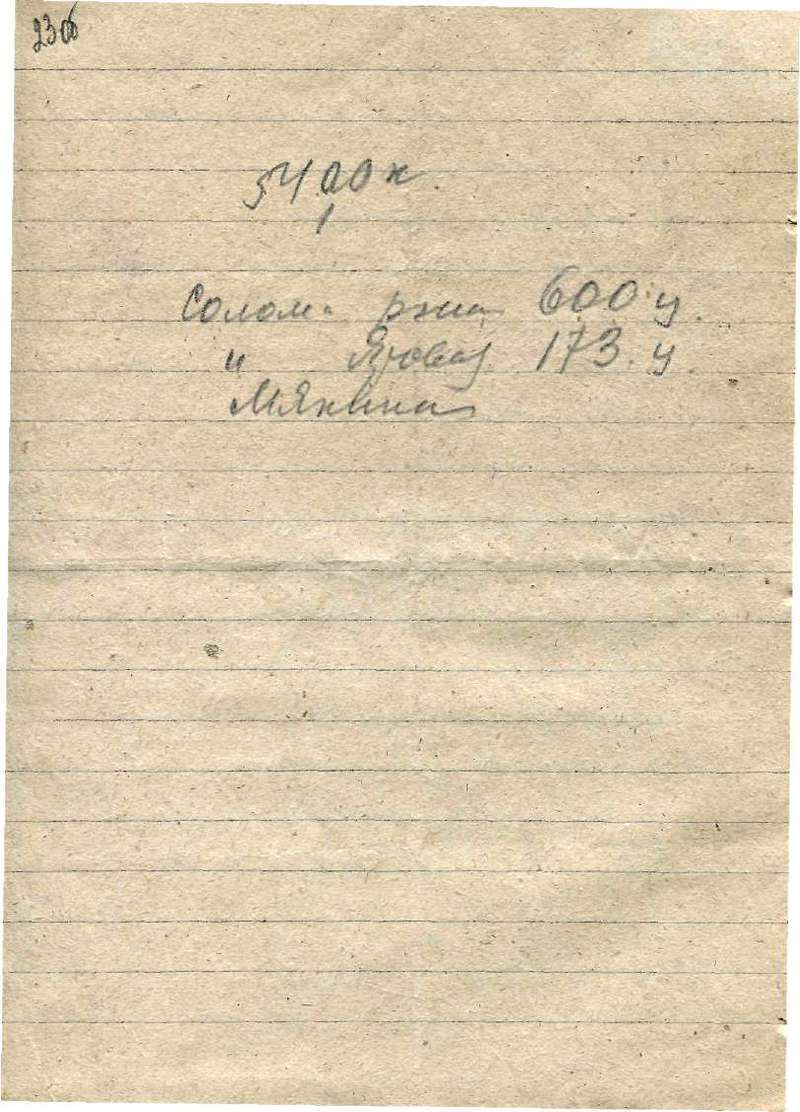 23об
5400 к
Солома ржан 600 ц.
" Яровая 173 ц.
Мякина